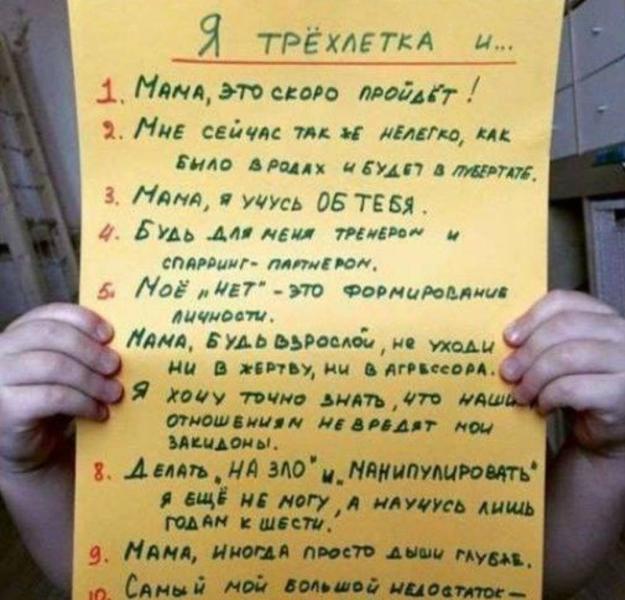 Я ТРЁХЛЕТКА И...
1. МАМА, ЭТО СКОРО ПРОЙДЁТ!
2. МНЕ СЕЙЧАС ТАК ЖЕ НЕЛЕГКО, КАК
БЫЛО В РОДАХ И БУДЕТ В ПУБЕРТАТЕ.
3. МАМА, Я УЧУСЬ ОБ ТЕБЯ.
4. БУДЬ ДЛЯ МЕНЯ ТРЕНЕРОМ И
СПАРРИНГ-ПАРТНЕРОМ.
5. МОЁ „НЕТ" - ЭТО ФОРМИРОВАНИЕ
ЛИЧНОСТИ.
МАМА, БУДЬ ВЗРОСЛОЙ, НЕ УХОДИ
НИ В ЖЕРТВУ, НИ В АГРЕССОРА.
Я ХОЧУ ТОЧНО ЗНАТЬ, ЧТО НАШИ
ОТНОШЕНИЯМ НЕ ВРЕДЯТ МОИ
ЗАКИДОНЫ.
8. ДЕЛАТЬ „НА ЗЛО" И „МАНИПУЛИРОВАТЬ"
Я ЕЩЁ НЕ МОГУ, А НАУЧУСЬ ЛИШЬ
ГОДАМ К ШЕСТИ.
9. МАМА, ИНОГДА ПРОСТО ДЫШИ ГЛУБЖЕ.
10. САМЫЙ МОЙ БОЛЬШОЙ НЕДОСТАТОК -